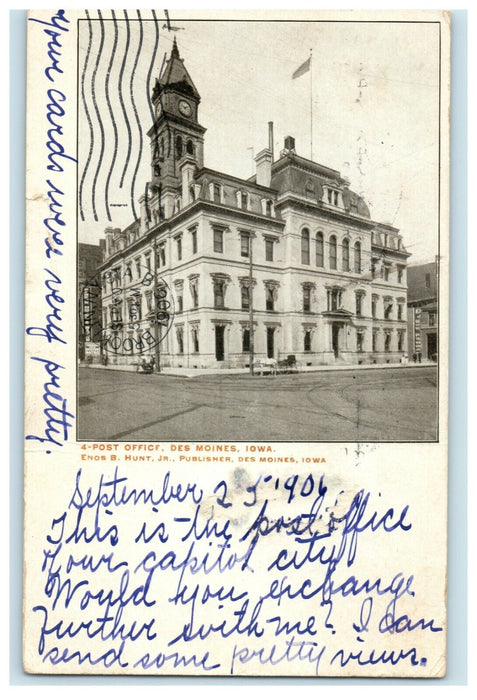 Your cards were very pretty.
BROOK
4-POST OFFICE, DES MOINES, IOWA.
ENOS B. HUNT, JR., PUBLISHER, DES MOINES, IOWA
September 25 1906
This is the post office
of our capitol city
Would you exchange
further with me? I can
send some pretty views.